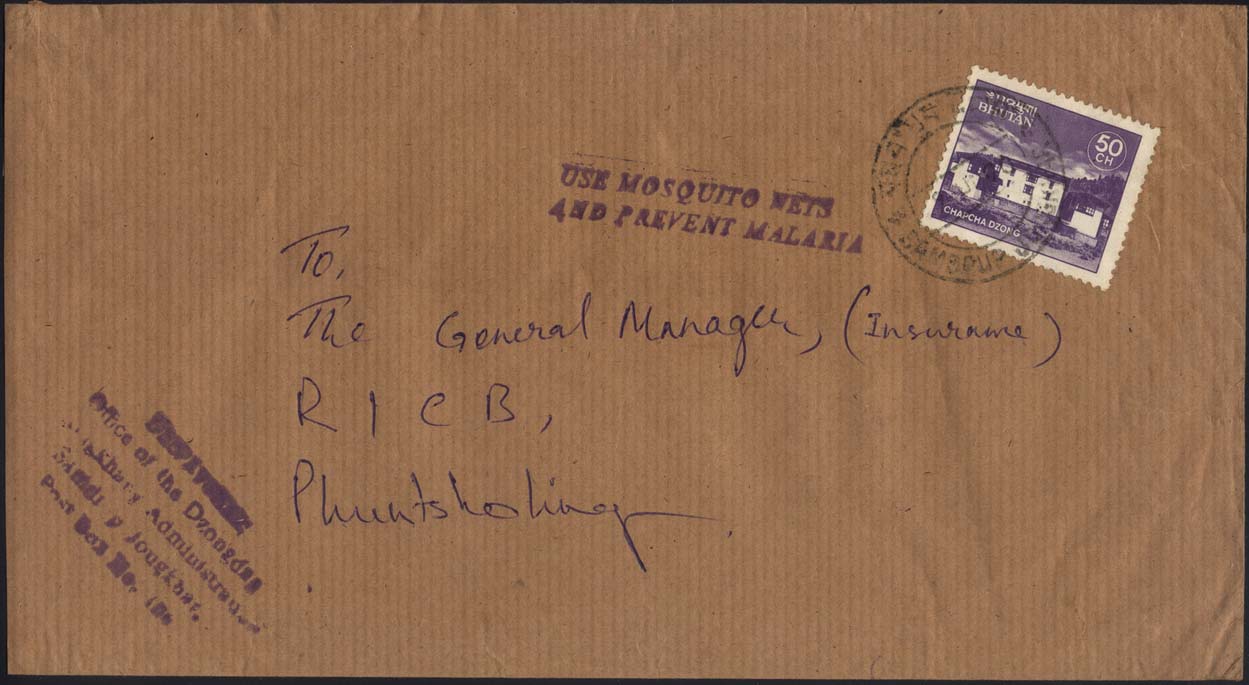 BHUTAN
50
CH
CHAPCHA DZONG
USE MOSQUITO NETS
AND PREVENT MALARIA
To,
The General Manager, (Insurance)
R I C B,
Phuntsholing
Office of the Dzongdag
Administration
Jongkhar.
Post Box No.